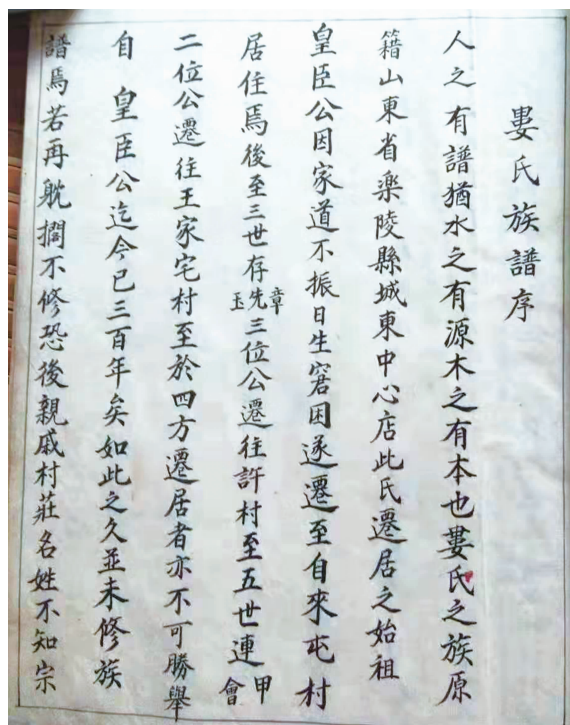 婁氏族譜序
人之有譜猶水之有源木之有本也婁氏之族原
籍山東省樂陵縣城東中心店此氏遷居之始祖
皇臣公因家道不振日生窘困遂遷至自來屯村
居住焉後至三世存章先玉三位公遷往許村至五世連甲會
二位公遷往王家宅村至於四方遷居者亦不可勝舉
自皇臣公迄今已三百年矣如此之久並未修族
譜焉若再躭擱不修恐後親戚村莊名姓不知宗